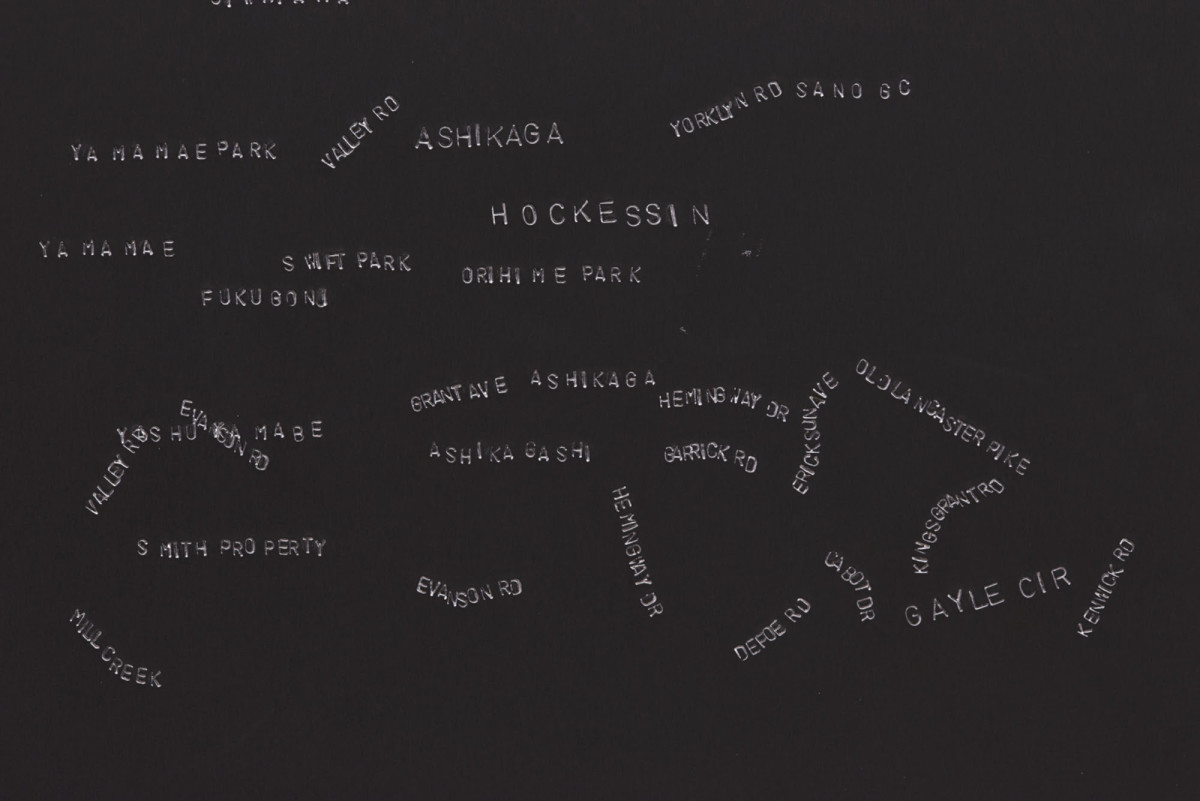 VALLEY RD
YORKLYN RD
SANO GC
YAMAMAE PARK
ASHIKAGA
HOCKESSIN
YAMAMAE
SWIFT PARK
ORIHIME PARK
FUKUBONJ
GRANT AVE
ASHIKAGA
HEMINGWAY DR
ERICKSON AVE
OLD LANCASTER PIKE
EVANSON RD
MABE
VALLEY RD
ASHIKAGASHI
GARRICK RD
HEMINGWAY DR
KINGS GRANT RD
SMITH PROPERTY
EVANSON RD
CABOT DR
GAYLE CIR
KENWICK RD
DEFOE RD
MILL CREEK